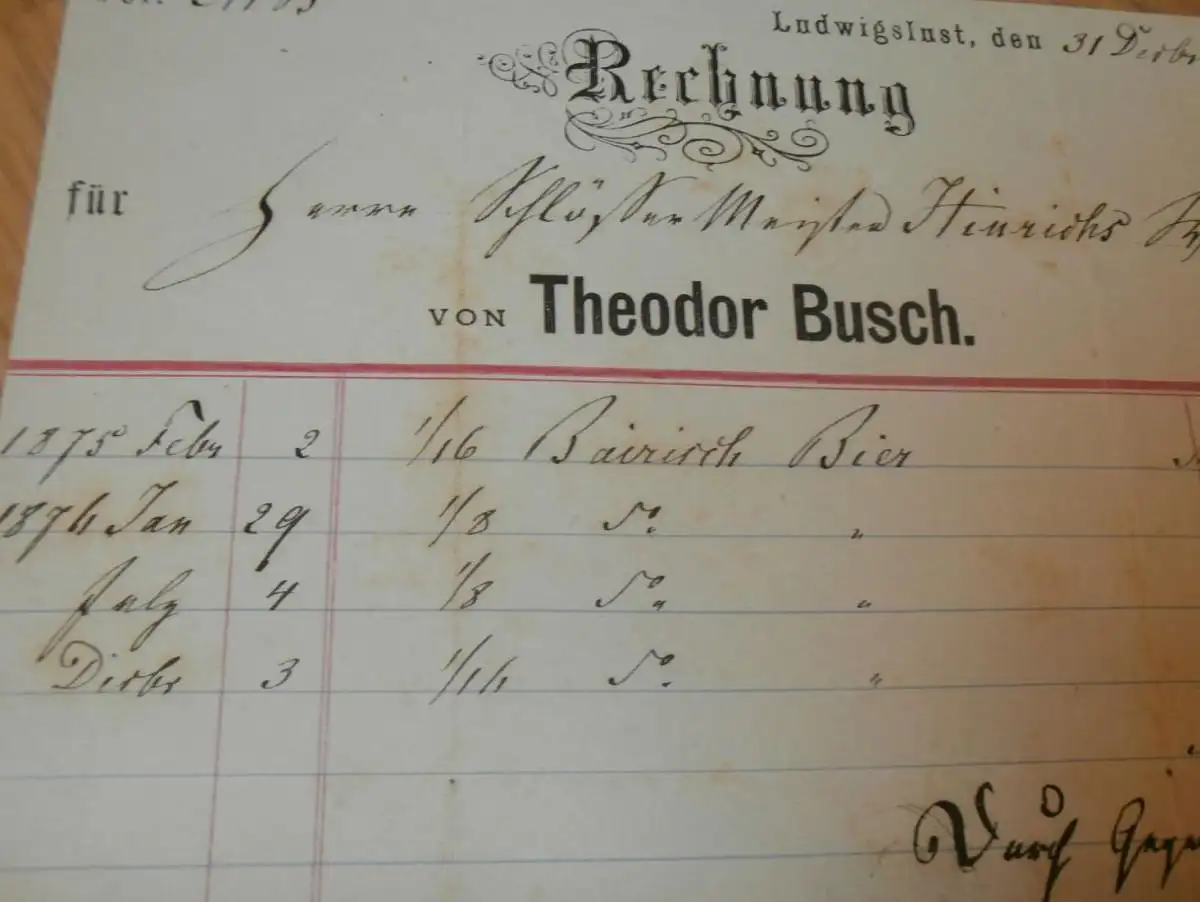 Ludwigslust, den 31 Decbr
Rechnung
für Herrn Schlösser Meister Hinrichs
VON Theodor Busch.
1875 Febr 2 1/16 Bairisch Bier
1876 Jan 29 1/8 do. "
July 4 1/8 do. "
Decbr 3 1/16 do. "
Durch Gege